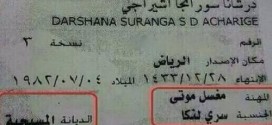 درشانا سورانجا اشيراجي
DARSHANA SURANGA S D ACHARIGE
الرقم نسخة ٢
مكان الإصدار الرياض
الانتهاء ١٤٣٣/١٢/٢٨ الميلاد ١٩٨٢/٠٧/٠٤
المهنة مغسل موتى
الجنسية سري لنكا الديانة المسيحية